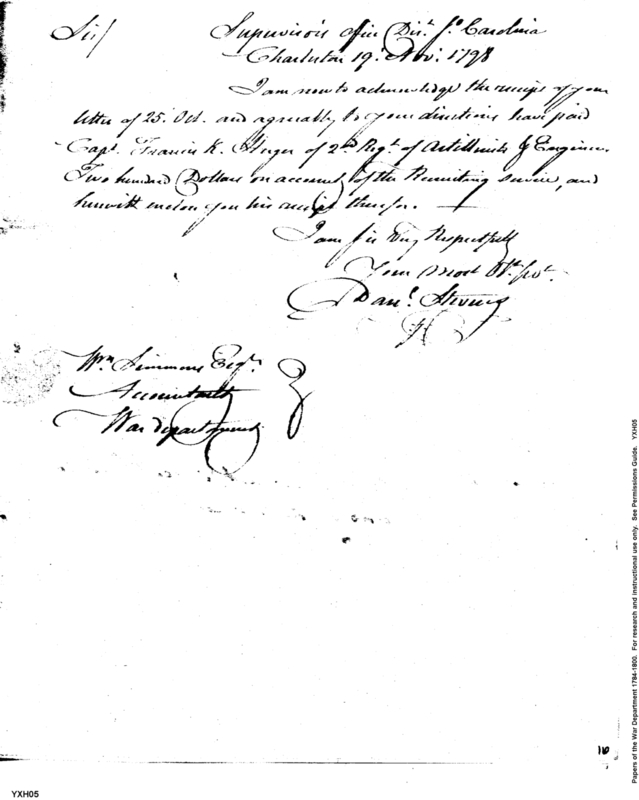 Sir/ Supervisor's Office Dist. So. Carolina
Charleston 19. Nov. 1798
I am now to acknowledge the receipt of your
letter of 25. Oct. and agreeably to your directions have paid
Capt. Francis K. Huger of 2nd. Regt. of Artillerists & Engineers
Two hundred Dollars on account of the Recruiting service, and
herewith enclose you his receipt therefor.
I am Sir Very Respectfully
Your Most Obt. Servt.
Danl. Stevens
Wm. Simmons Esqr.
Accountant
War Department
16
YXH05
Papers of the War Department 1784-1800. For research and instructional use only. See Permissions Guide. YXH05